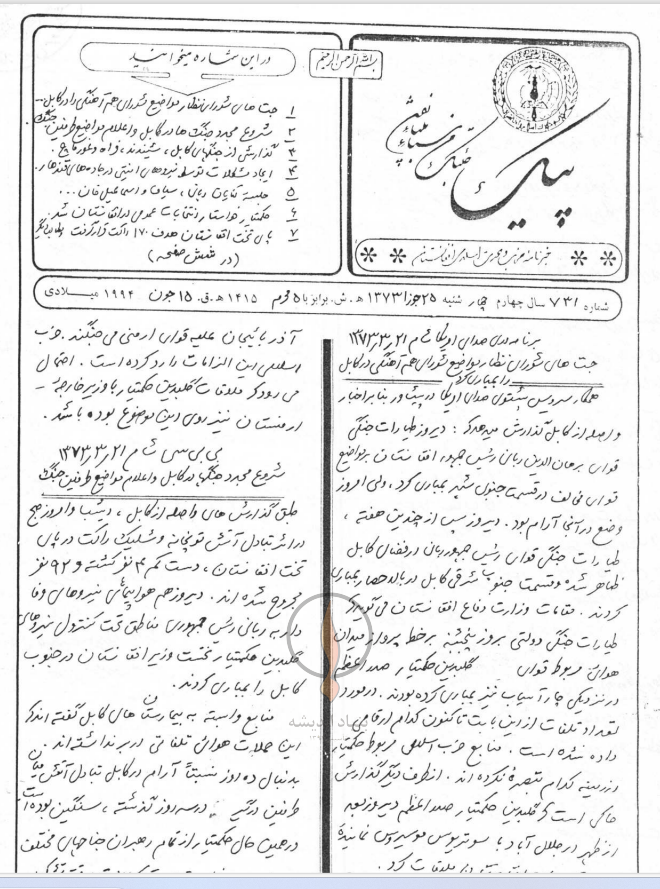 بسم الله الرحمن الرحیم
پیک
خبرنامه حزب وحدت اسلامی افغانستان
در این شماره میخوانید
۱ جت های شورای نظار مواضع شورای هم آهنگی را در کابل
۲ شروع مجدد جنگ ها در کابل و اعلام مواضع طرفین جنگ
۳ گذارش از جنگهای کابل ، شیندند ، فراه و غور
۴ ایجاد مشکلات توسط نیروهای امنیتی در جاده های قندهار
۵ جلسه ربانی ، سیاف و اسماعیل خان ...
۶ حکمتیار خواستار انتخابات عمومی در افغانستان شد
۷ پای تخت افغانستان هدف ۱۷۰ راکت قرار گرفت
( در شش صفحه )
شماره ۷۳۱ سال چهارم چهار شنبه ۲۵ جوزا ۱۳۷۳ ه.ش. برابر با ۵ محرم ۱۴۱۵ ه.ق. ۱۵ جون ۱۹۹۴ میلادی
برنامه صدای امریکا شام ۲۱ ر ۳ ر ۱۳۷۳
جت های شورای نظار مواضع شورای هم آهنگی در کابل
را بمباری کرد
همکار سرویس پشتوی صدای امریکا در پشاور بنا بر اخبار
واصله از کابل گذارش میدهد که : دیروز طیارات جنگی
قوای برهان الدین ربانی رئیس جمهور افغانستان بر مواضع
قوای مخالف در قسمت جنوب شهر بمباری کرد ، ولی امروز
وضع در آنجا آرام بود . دیروز پس از چندین هفته ،
طیارات جنگی قوای رئیس جمهور ربانی در فضای کابل
ظاهر شده و قسمت جنوب شرقی کابل در بالاحصار بمباری
کردند . مقامات وزارت دفاع افغانستان می گوید که
طیارات جنگی دولتی بروز پنجشنبه بر خط پرواز میدان
هوائی مربوط قوای گلبدین حکمتیار صدراعظم
در نزدیکی چارآسیاب نیز بمباری کرده بودند . در مورد
تعداد تلفات از این بابت تا کنون کدام ارقامی
داده نشده است . منابع حزب اسلامی مربوط حکمتیار
در زمینه کدام تبصرهٔ نکرده اند . از طرف دیگر گذارش
حاکی است که گلبدین حکمتیار صدراعظم دیروز بعد
از ظهر در جلال آباد با سوتریوس موسوریس نمایندهٔ
ملاقات کرد .
آذربائیجان علیه قوای ارمنی می جنگند . حزب
اسلامی این الزامات را رد کرده است . احتمال
می رود که ملاقات گلبدین حکمتیار با وزیر خارجه
ارمنستان نیز روی این موضوع بوده باشد .
بی بی سی شام ۲۱ ر ۳ ر ۱۳۷۳
شروع مجدد جنگها در کابل و اعلام مواضع طرفین جنگ
طبق گذارش های واصله از کابل ، دیشب و امروز صبح
در اثر تبادل آتش توپخانه و شلیک راکت در پای
تخت افغانستان ، دست کم ۴ نفر کشته و ۹۲ نفر
مجروح شده اند . دیروز هم هواپیمای نیروهای وفا
دار به ربانی رئیس جمهوری مناطق تحت کنترول نیروهای
گلبدین حکمتیار نخست وزیر افغانستان در جنوب
کابل را بمباری کردند .
منابع وابسته به بیمارستان های کابل گفته اند که
این حملات هوائی تلفاتی در بر نداشته اند .
بدنبال ده روز نسبتاً آرام در کابل تبادل آتش میان
طرفین درگیر در سه روز گذشته ، سنگین بوده است
در همین حال حکمتیار از تمام رهبران جناحهای مختلف
بنیاد اندیشه